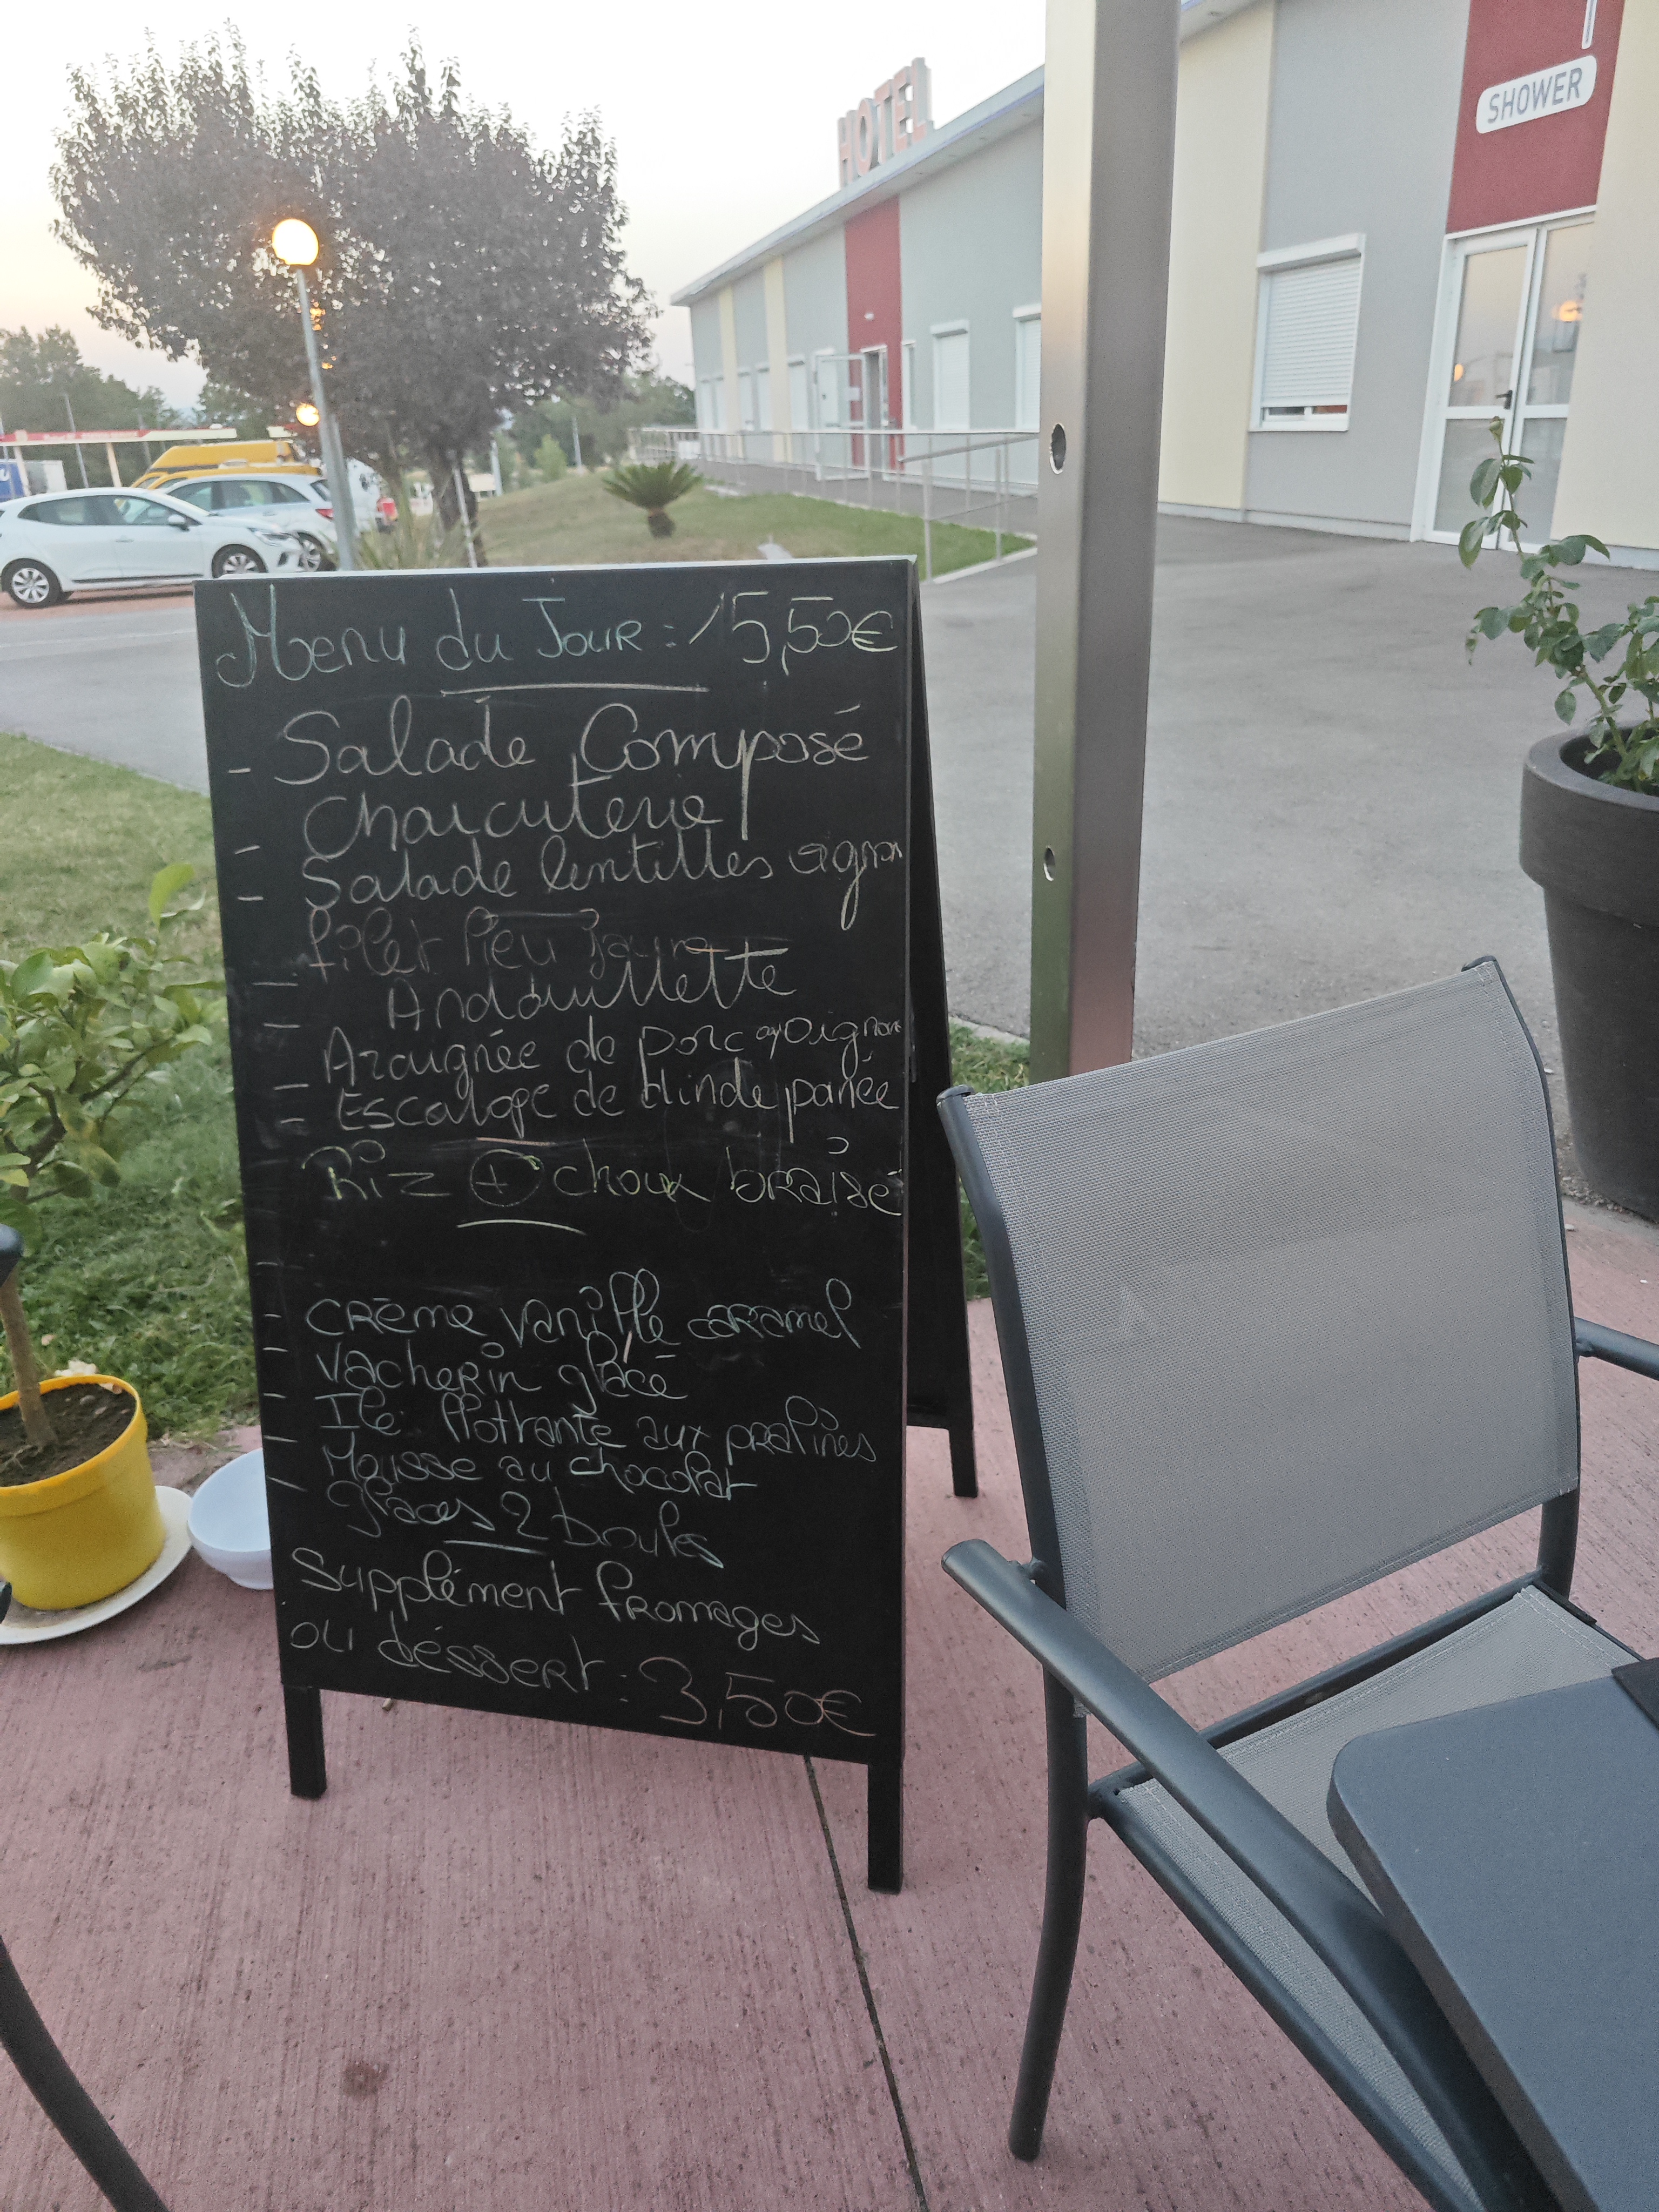 HOTEL
SHOWER
Menu du Jour : 15,50€
- Salade Composé
- Charcuterie
- Salade lentilles oignon
- filet lieu jaune
- Andouillette
- Araignée de porc oignon
- Escalope de dinde panée
Riz + choux braisé
- Crème vanille caramel
- Vacherin glacé
- Ile flottante aux pralines
- Mousse au chocolat
- glaces 2 boules
Supplément fromages
ou déssert : 3,50€